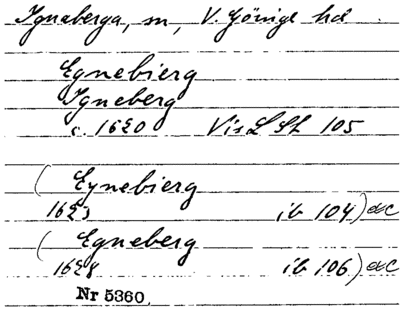 Igneberga, m, V. Gönige hd
Egnebierg
Igneberg
c. 1620 Vis L Sk 105
( Eynebierg
1623 ib 104) OGC
( Egneberg
1628 ib 106) OGC
Nr 5360.